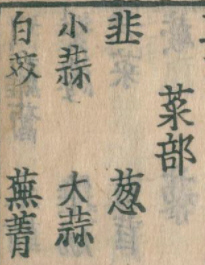 菜部
韭　葱
小蒜　大蒜
白苃　蕪菁